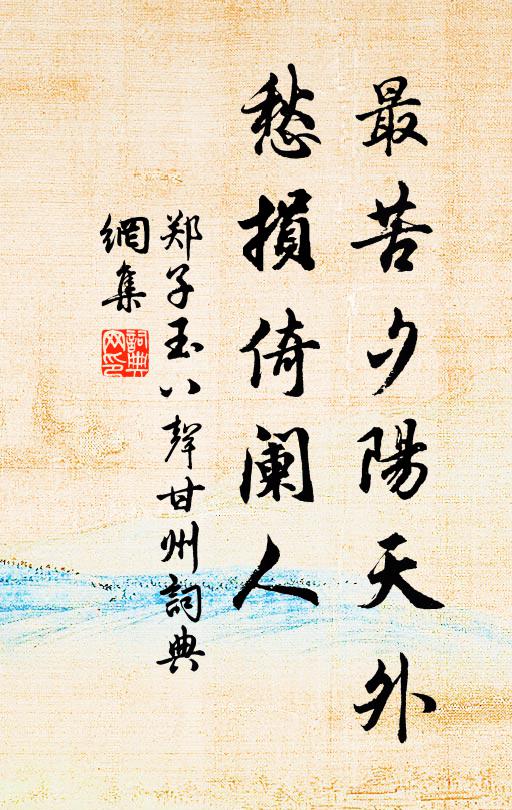 最苦夕陽天外
愁損倚阑人
郑子玉八聲甘州詞典
網集
詞典
网印